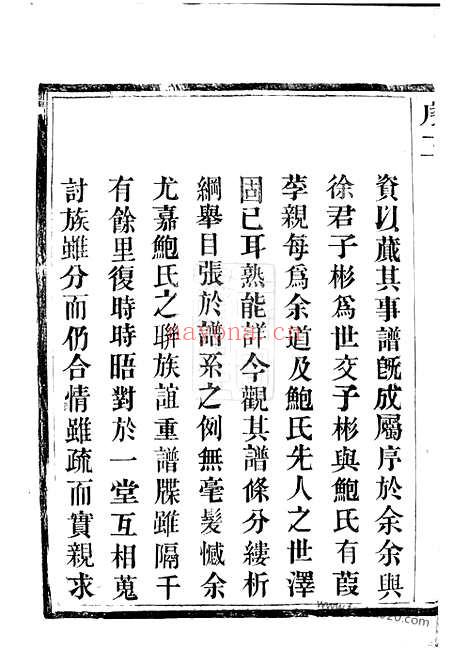 序二
資以蕆其事譜旣成屬序於余余與
徐君子彬爲世交子彬與鮑氏有葭
莩親每爲余道及鮑氏先人之世澤
固已耳熟能詳今觀其譜條分縷析
綱舉目張於譜系之例無毫髮憾余
尤嘉鮑氏之聯族誼重譜牒雖隔千
有餘里復時時晤對於一堂互相蒐
討族雖分而仍合情雖疏而實親求
nayona.cn